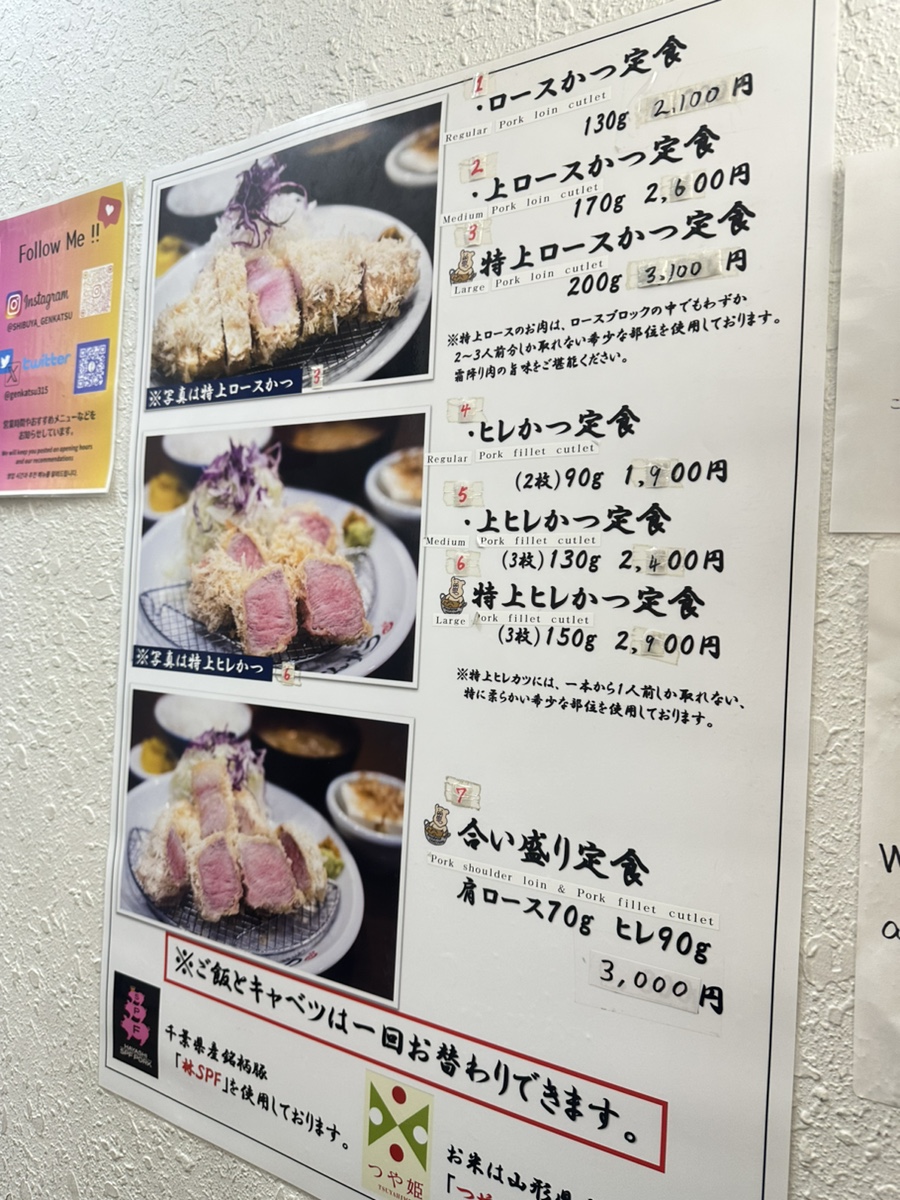 Follow Me !!
Instagram
@SHIBUYA_GENKATSU
twitter
@genkatsu315
営業時間やおすすめメニューなどを
お知らせしています。
We will keep you posted an opening hours
and our recommendations.
1
・ロースかつ定食
Regular Pork loin cutlet
130g 2,100円
2
・上ロースかつ定食
Medium Pork loin cutlet
170g 2,600円
3
特上ロースかつ定食
Large Pork loin cutlet
200g 3,100円
※特上ロースのお肉は、ロースブロックの中でもわずか
2〜3人前分しか取れない希少な部位を使用しております。
霜降り肉の旨味をご堪能ください。
※写真は特上ロースかつ 3
4
・ヒレかつ定食
Regular Pork fillet cutlet
(2枚)90g 1,900円
5
・上ヒレかつ定食
Medium Pork fillet cutlet
(3枚)130g 2,400円
6
特上ヒレかつ定食
Large Pork fillet cutlet
(3枚)150g 2,900円
※特上ヒレカツには、一本から1人前しか取れない、
特に柔らかい希少な部位を使用しております。
※写真は特上ヒレかつ 6
7
合い盛り定食
Pork shoulder loin & Pork fillet cutlet
肩ロース70g ヒレ90g
3,000円
※ご飯とキャベツは一回お替わりできます。
SPF
HAYASHI
SPF PORK
千葉県産銘柄豚
「林SPF」を使用しております。
つや姫
お米は山形県
「つや
W
a